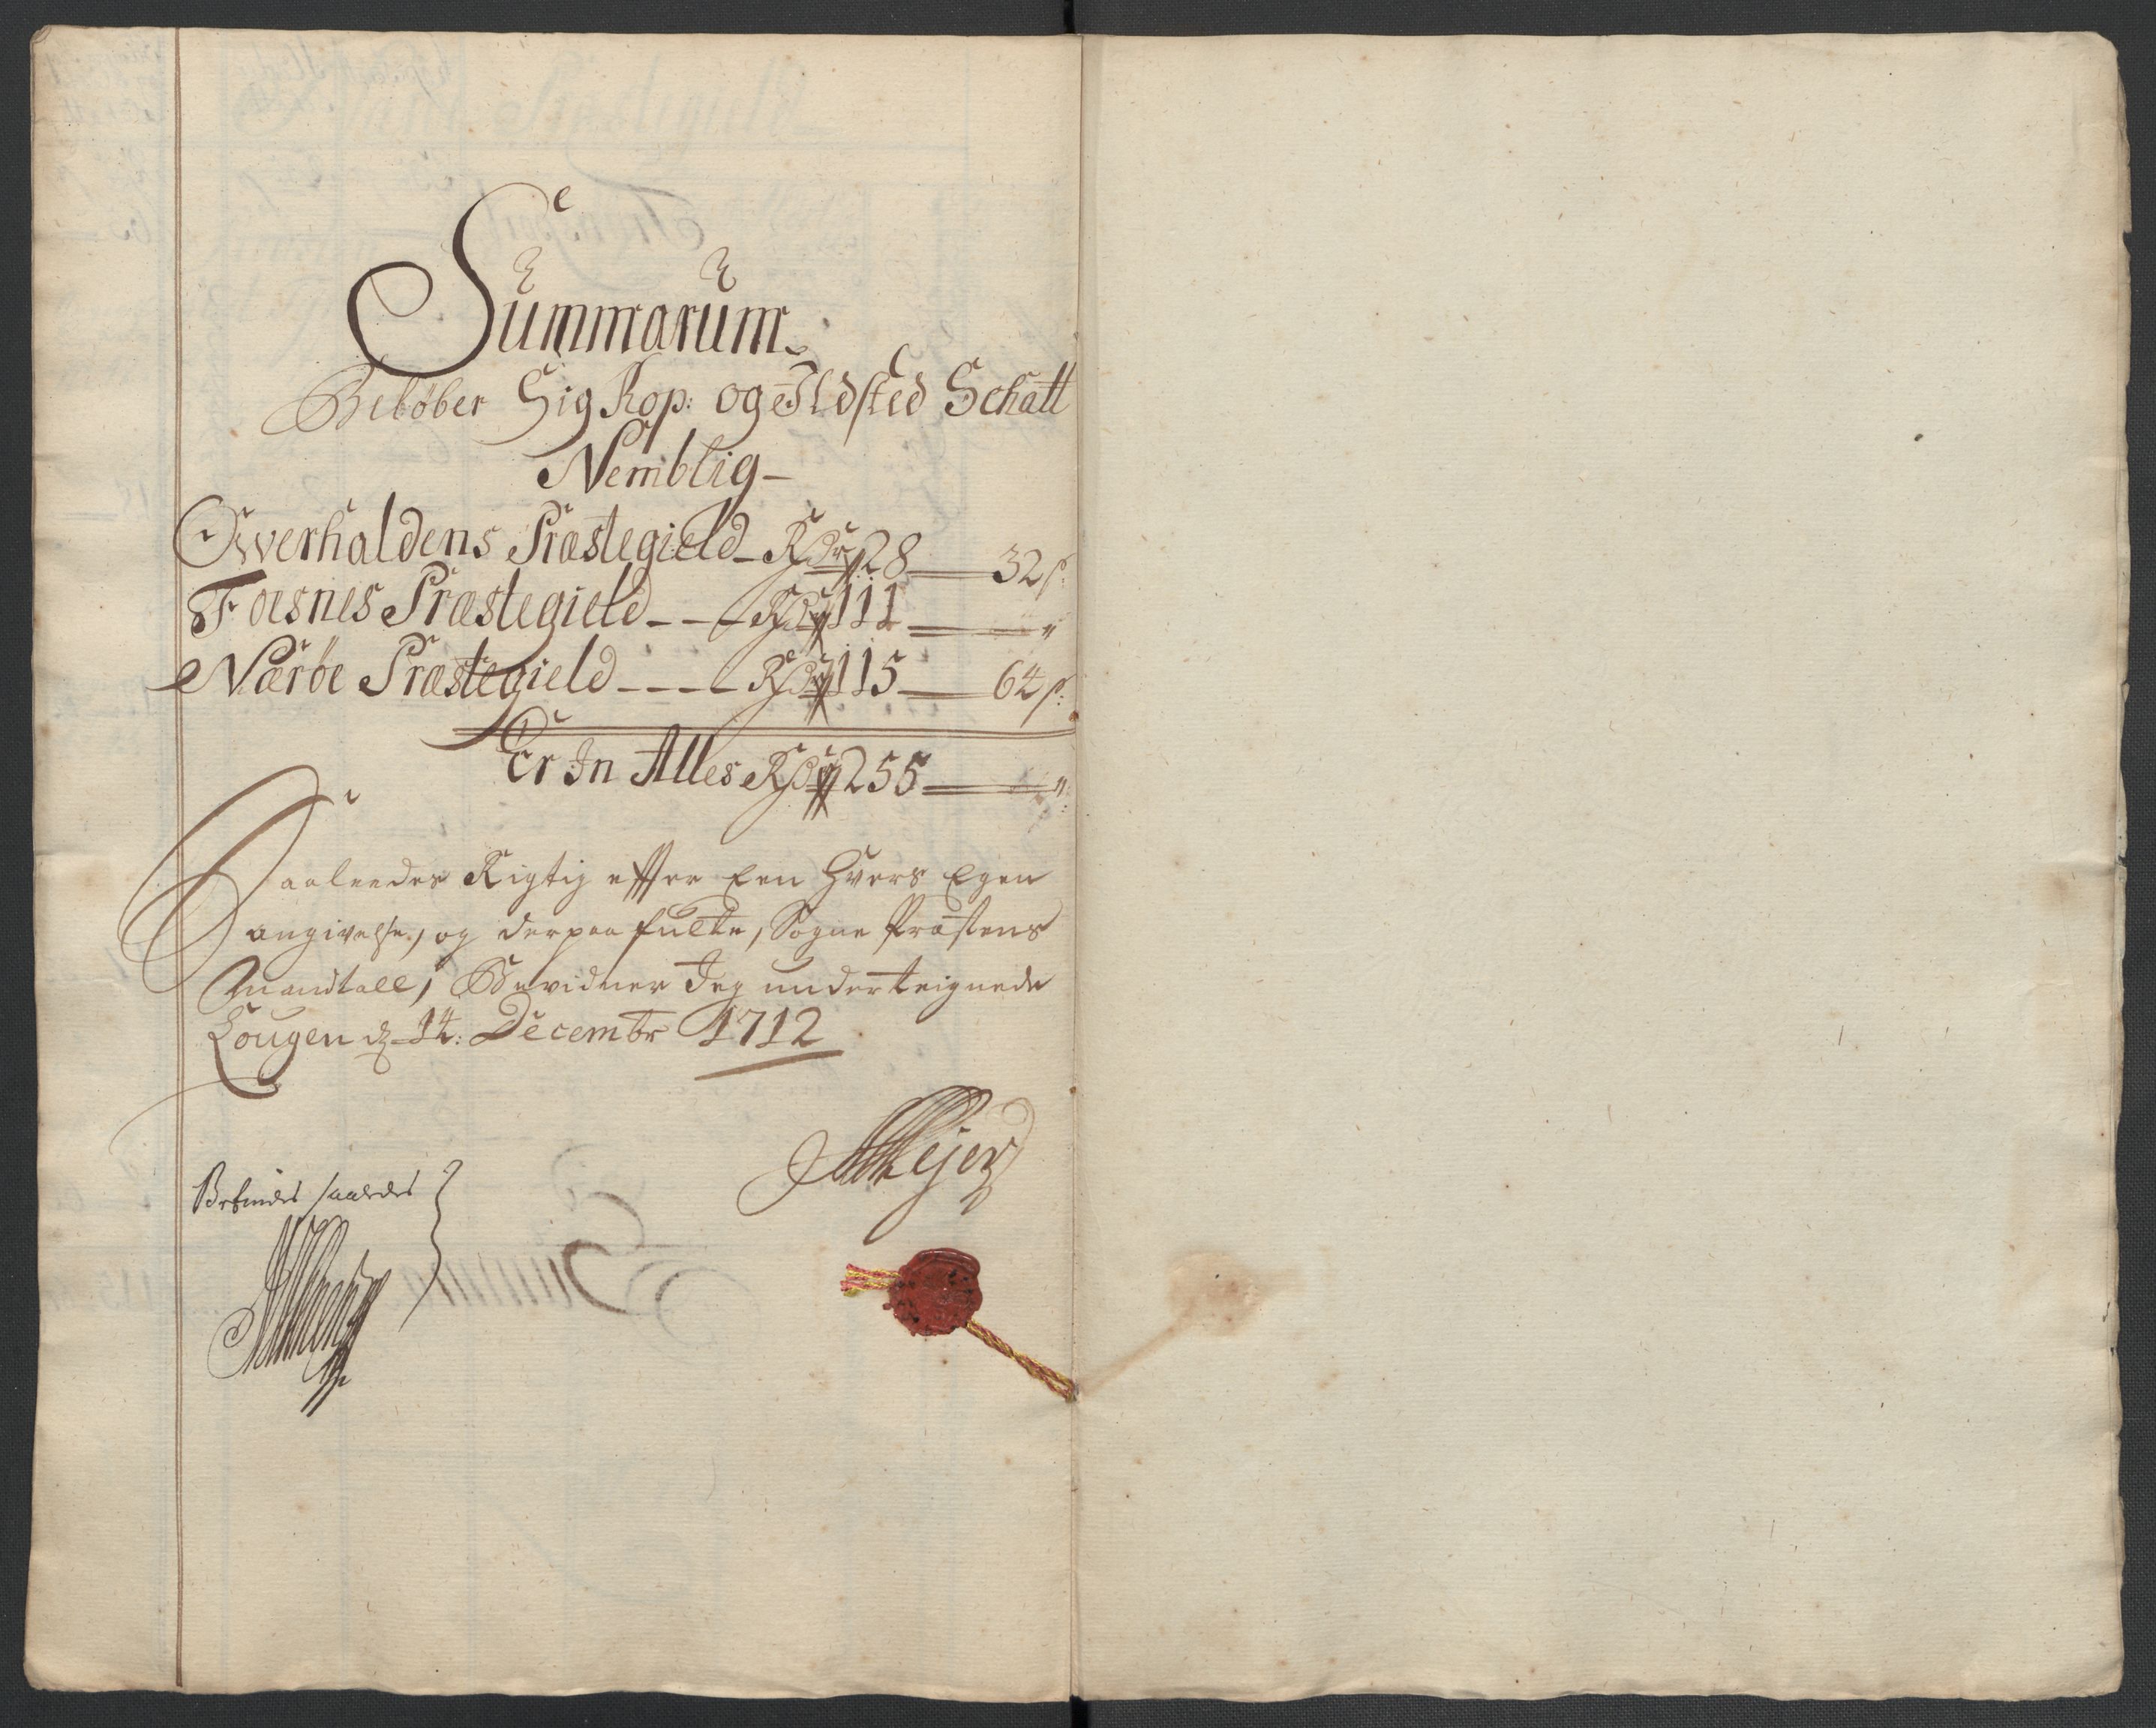 Summarum
Beløber Sig Kop: og Ildsted Schatt
Nemblig
Overhaldens Præstegield Rdr 28 32 ß:
Foesnes Præstegield Rdr 111 "
Nærøe Præstegield Rdr 115 64 ß:
Er In Alles Rdr 255 "
Saaleedes Rigtig efter Een Hvers Egen
angivelse, og derpaa fulte, Sogne Præstens
Mandtall, Bevidner Jeg underteignede
Lougen d. 14: Decembr 1712
Befindes saaledes